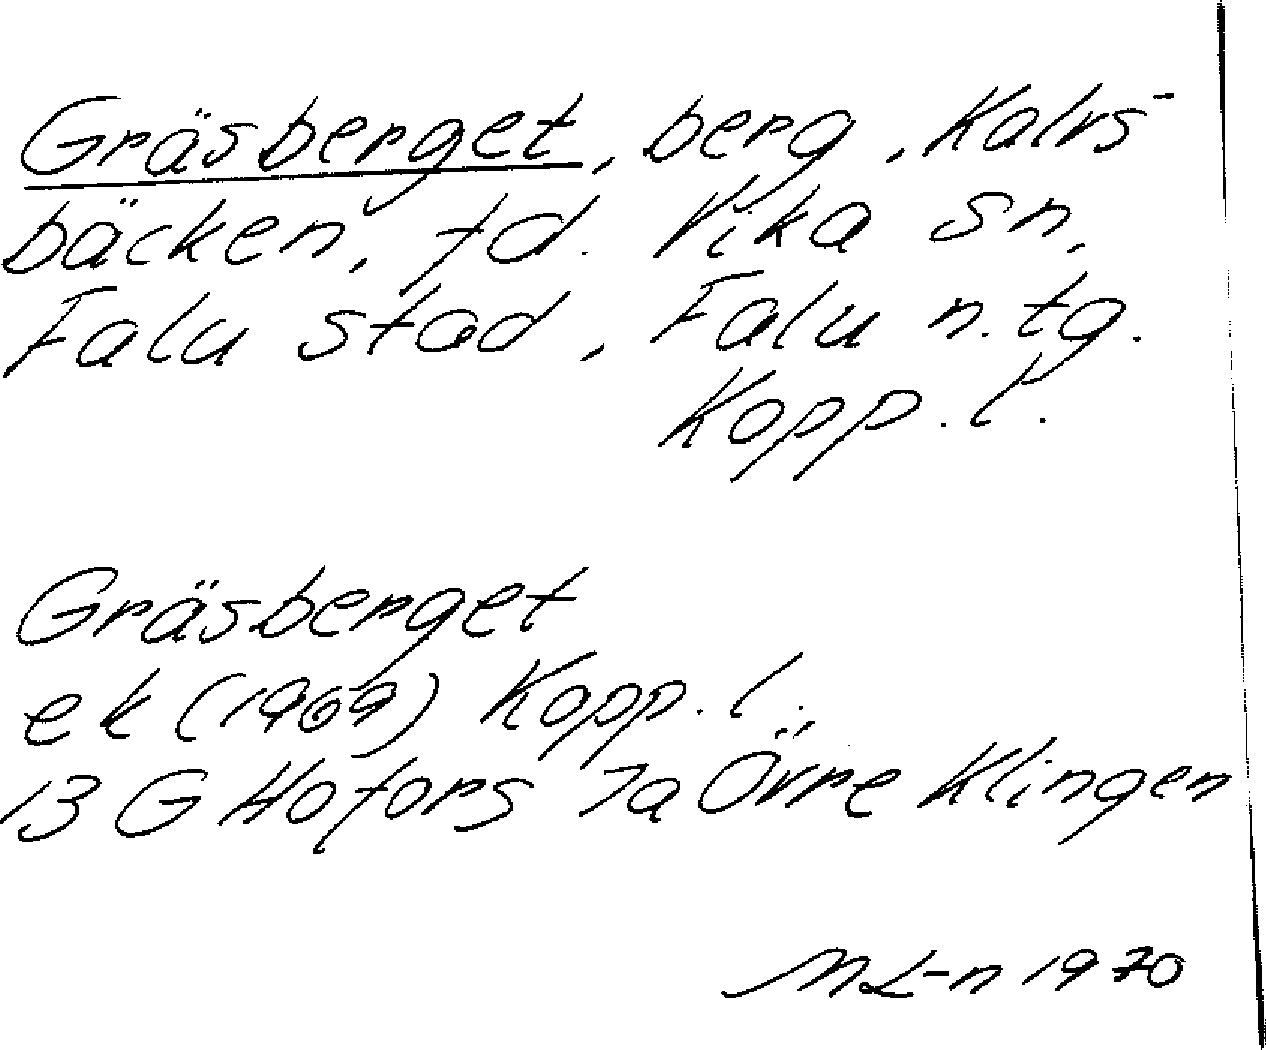 Gräsberget, berg, Kalvs-
bäcken, fd. Vika sn,
Falu stad, Falu n. tg.
Kopp. l.
Gräsberget
ek (1969) Kopp. l.
13 G Hofors 7a Övre Klingen
ML-n 1970